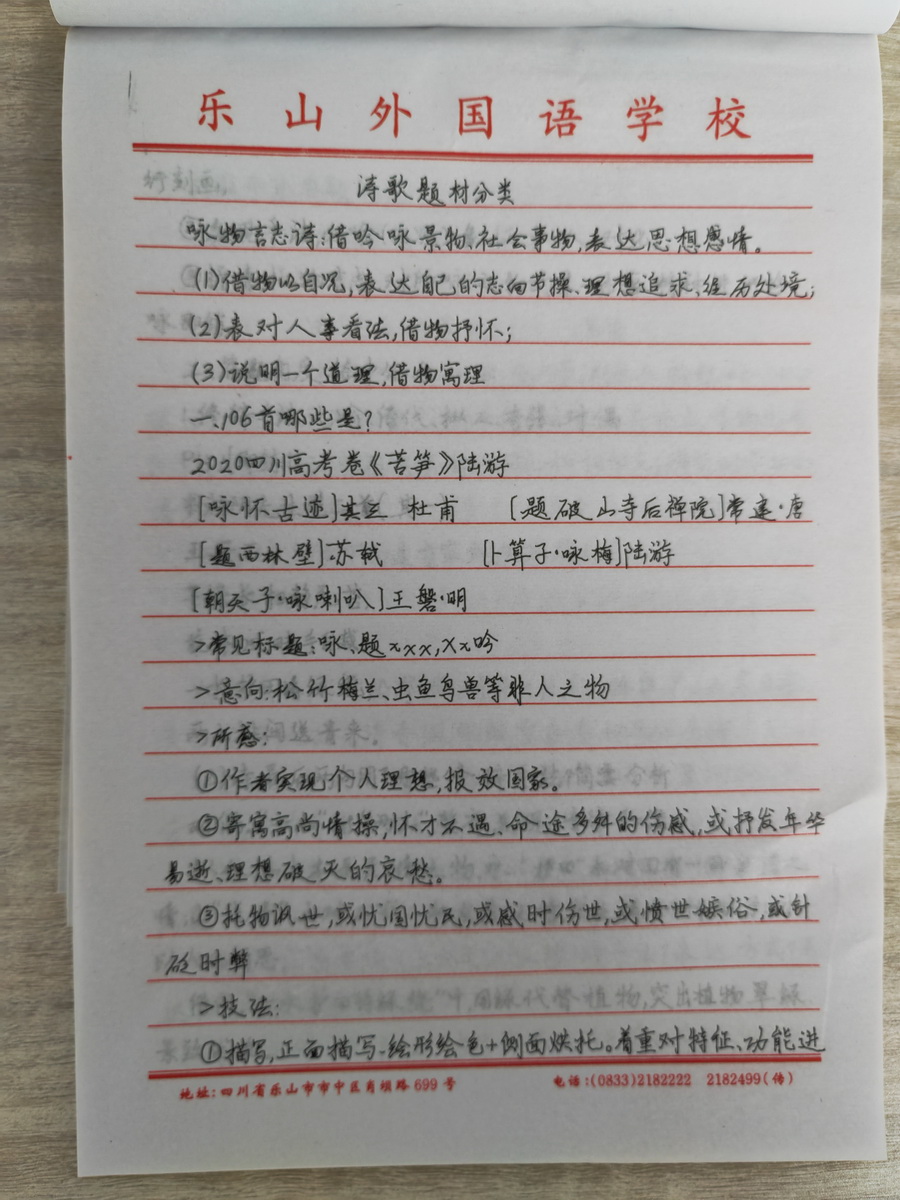 乐山外国语学校
诗歌题材分类
咏物言志诗:借吟咏景物、社会事物,表达思想感情。
(1)借物以自况,表达自己的志向节操、理想追求、经历处境;
(2)表对人事看法,借物抒怀;
(3)说明一个道理,借物寓理
一、106首哪些是?
2020四川高考卷《苦笋》陆游
[咏怀古迹]其三 杜甫 [题破山寺后禅院]常建·唐
[题西林壁]苏轼 [卜算子·咏梅]陆游
[朝天子·咏喇叭]王磐·明
>常见标题:咏、题xxx,xx吟
>意向:松竹梅兰、虫鱼鸟兽等非人之物
>所感:
①作者实现个人理想,报效国家。
②寄寓高尚情操,怀才不遇、命途多舛的伤感,或抒发年华
易逝、理想破灭的哀愁。
③托物讽世,或忧国忧民,或感时伤世,或愤世嫉俗,或针
砭时弊
>技法:
①描写,正面描写-绘形绘色+侧面烘托。着重对特征、功能进
地址:四川省乐山市市中区肖坝路699号 电话:(0833)2182222 2182499(传)